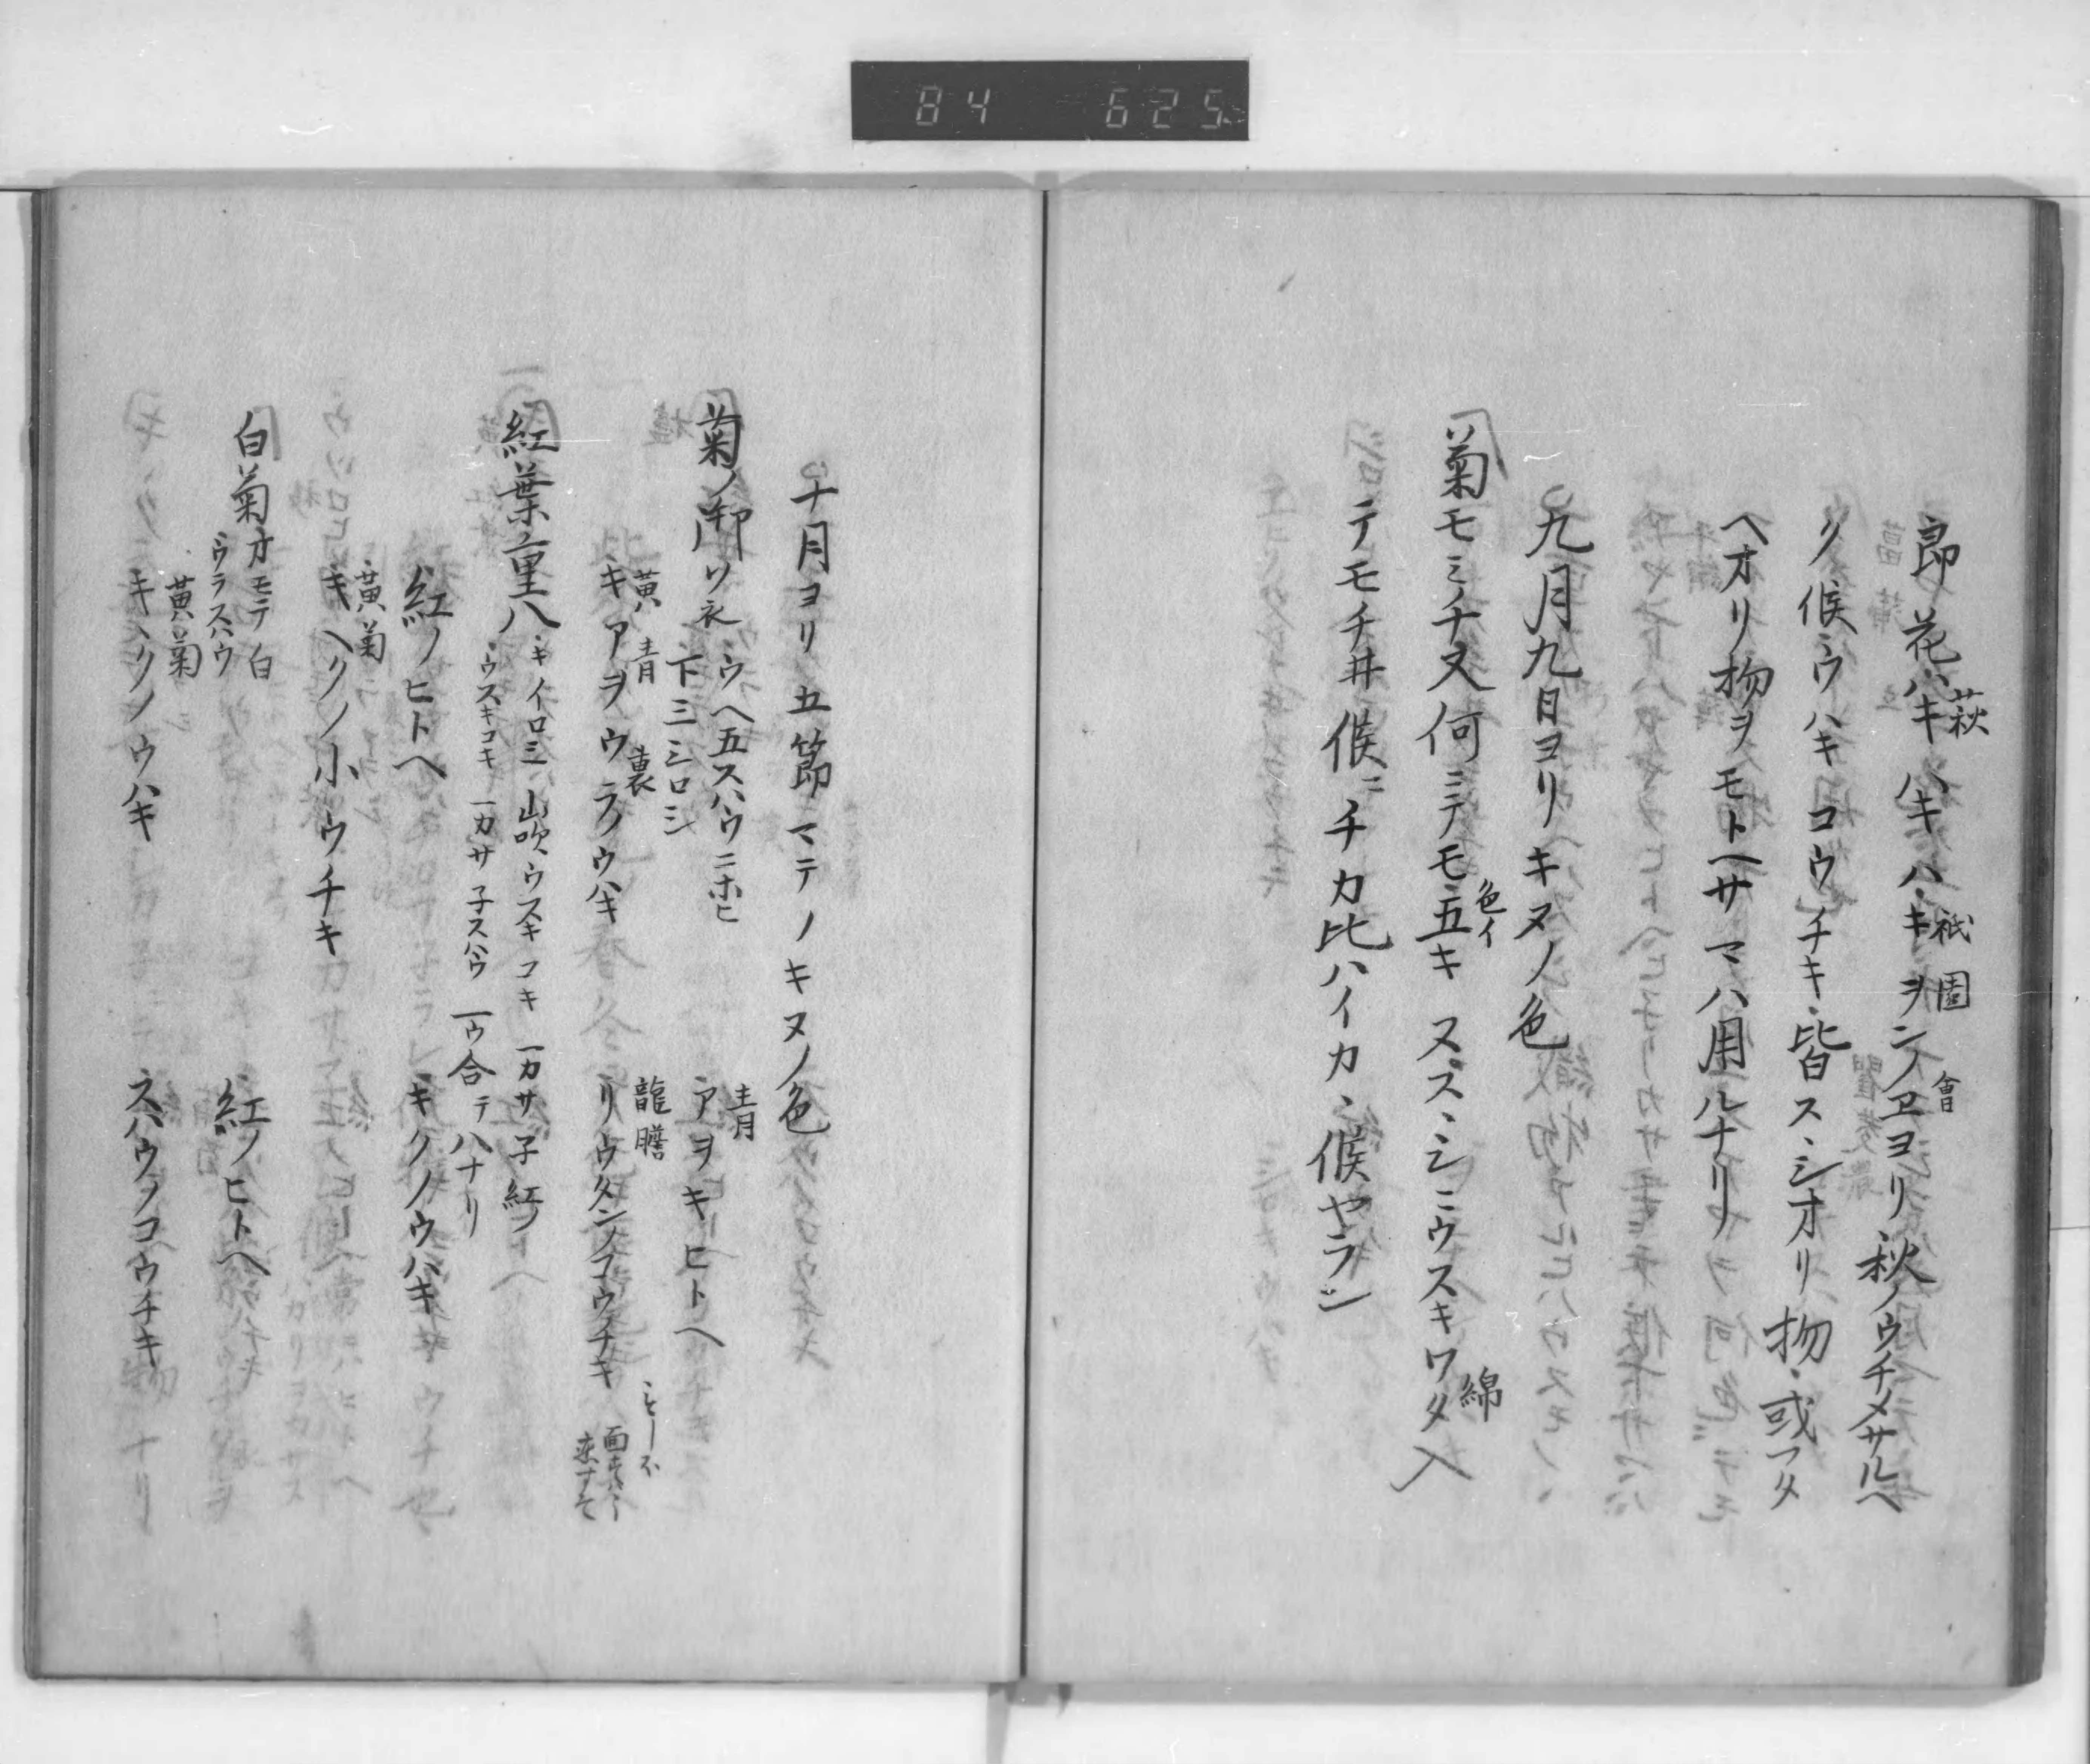 84 625
節 花ハキ ハキハ キヲンノヱヨリ 秋ノウチメサルヘ
萩
祇園
會
ク候 ウハキ コウチキ 皆スヽシオリ物 或フタ
ヘオリ物ヲモトヘサマハ用ルナリ
九月九日ヨリキヌノ色
菊モミチ又何ニテモ五キ スヽシニウスキワタ入
色イ
綿
テモチ井候ニチカ比ハイカヽ候ヤラン
十月ヨリ五節マテノキヌノ色
菊ノ御ソ衣 ウヘ五スハウニホヒ
下三シロシ
アヲキヒトヘ
青
キアヲウラノウハキ リウタンノコウチキ
黄 青 裏
龍膽
紅葉重八 キイロ三 山吹 ウスキコキ 一カサ子 紅ノ
ウスキコキ 一カサ子スハウ 一ウ合テハナリ
紅ノヒトヘ キクノウハキ
キヘクノ小ウチキ
黄菊
白菊 オモテ白
ウラスハウ
紅ノヒトヘ
キヘクノウハキ スハウノコウチキ
黄菊